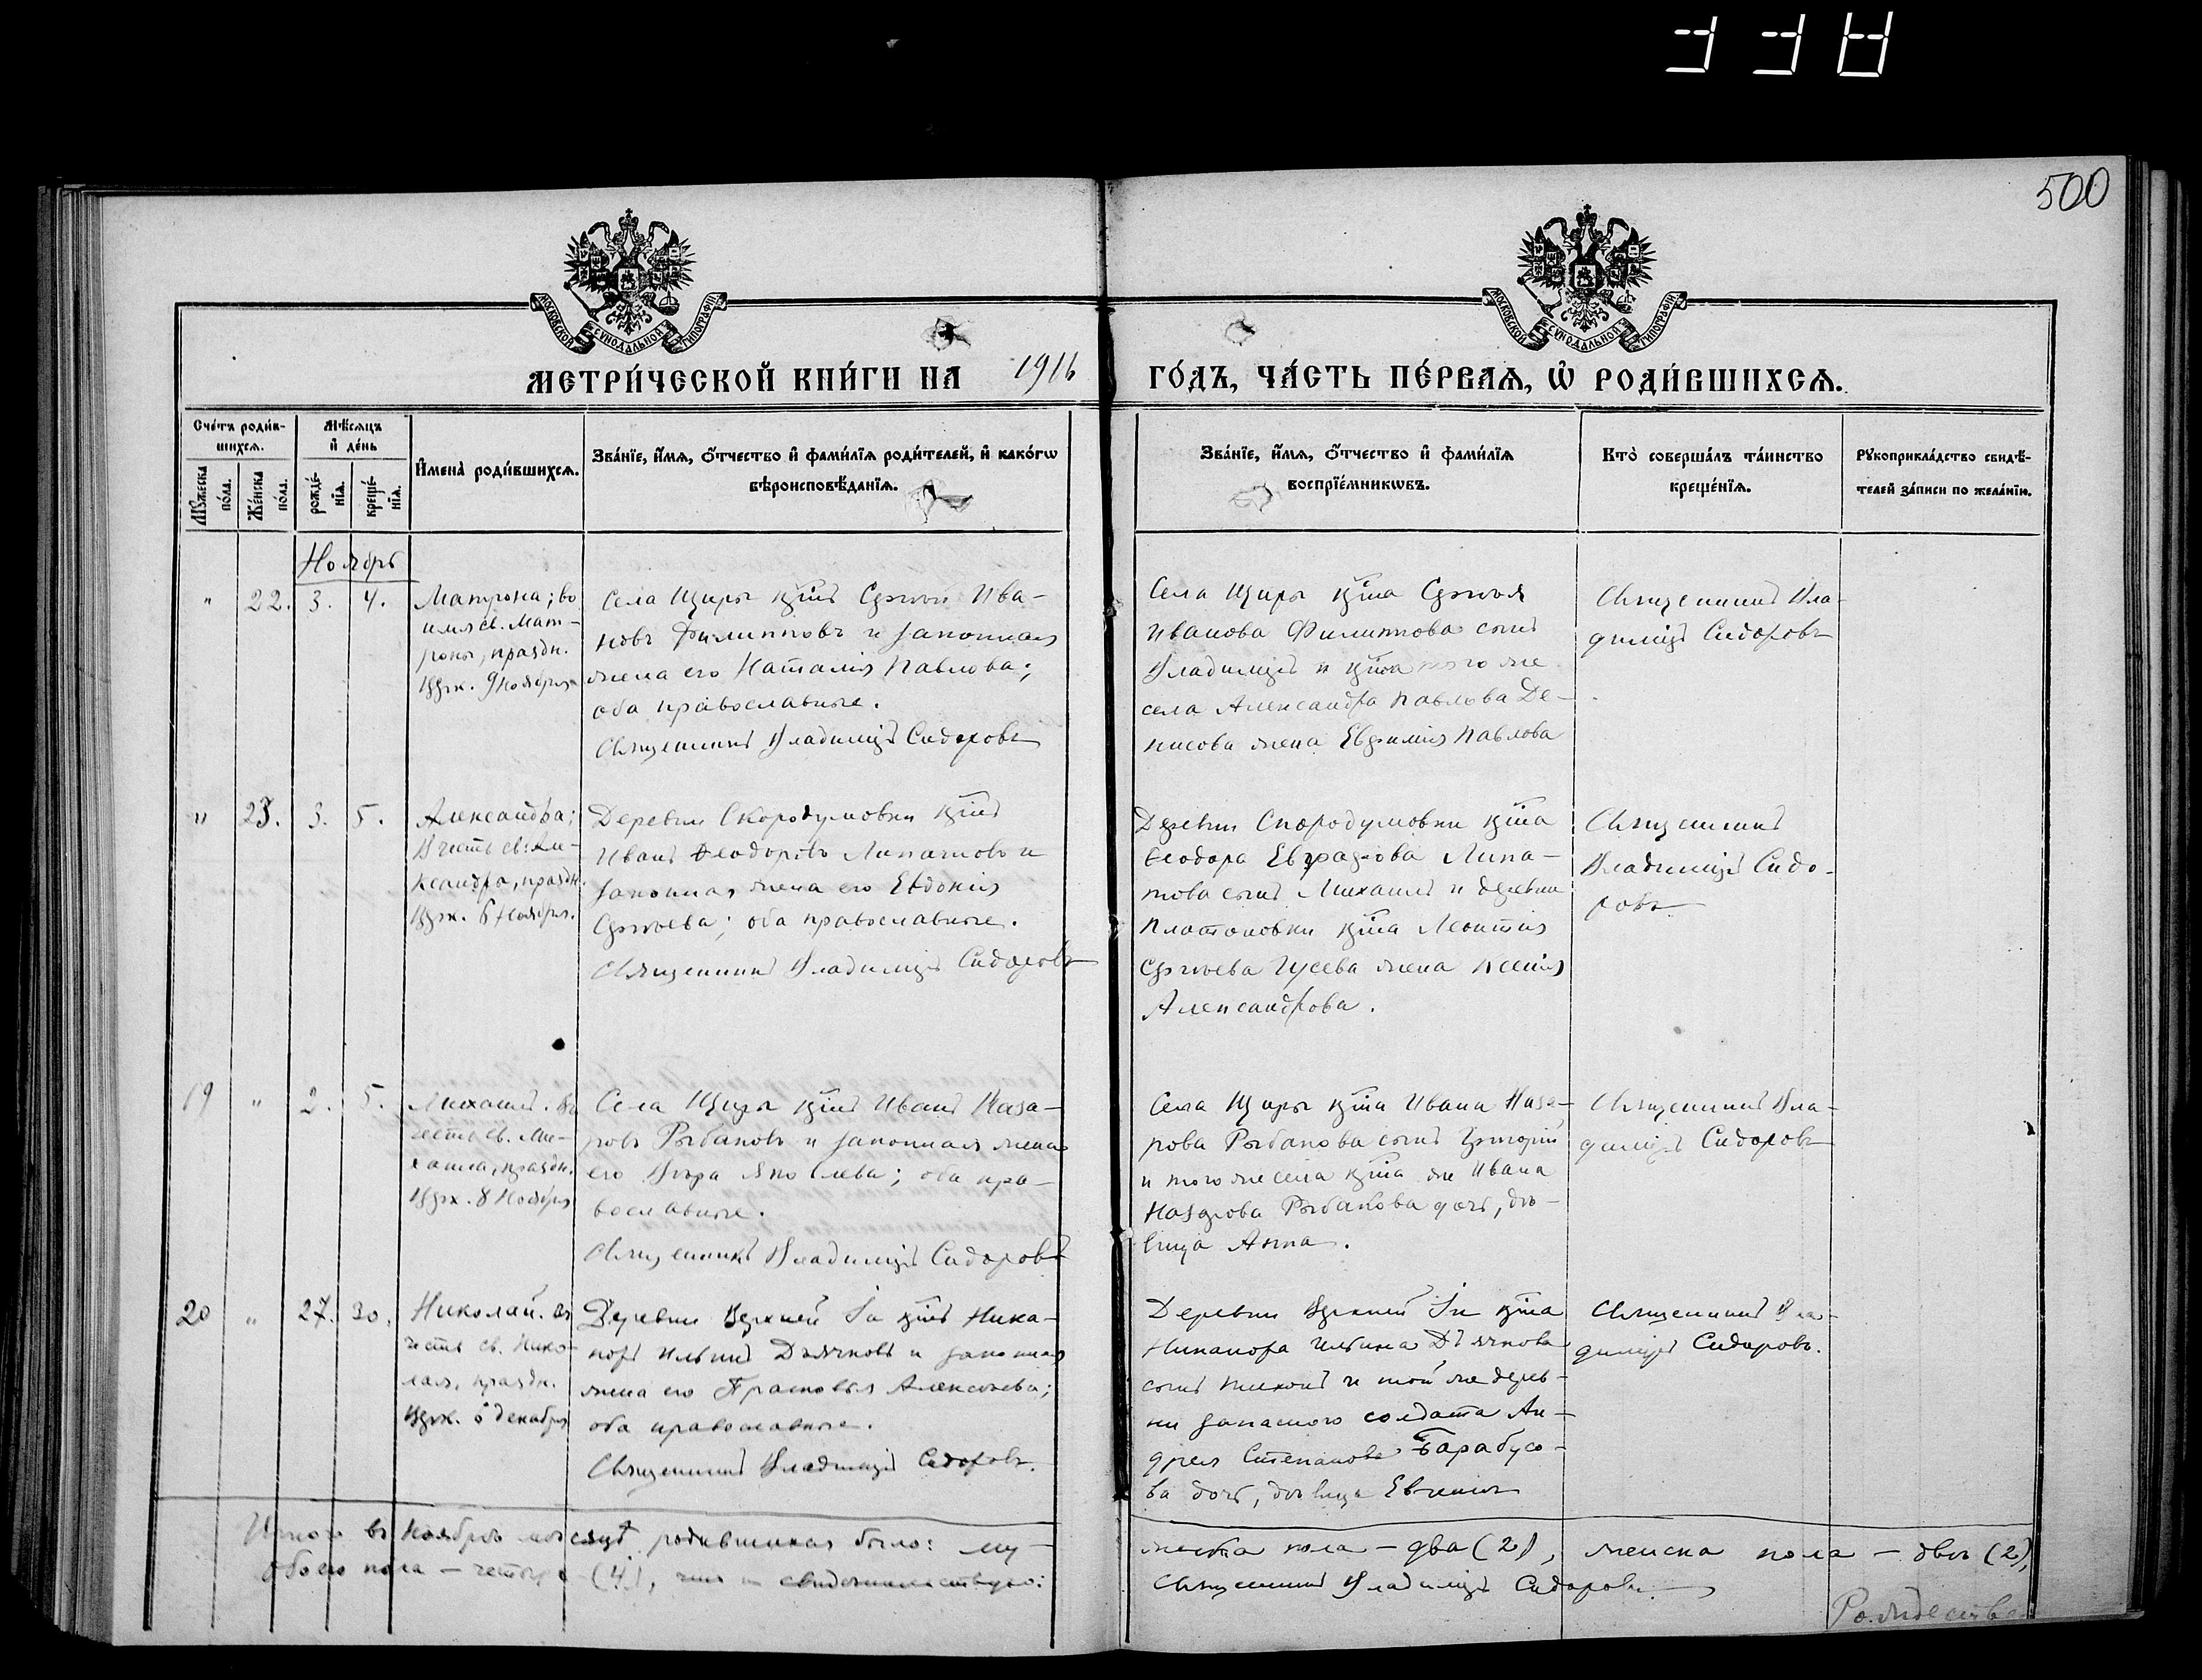 338
500
МОСКОВСКОЙ СУНОДАЛЬНОЙ ТИПОГРАФІИ
МОСКОВСКОЙ СУНОДАЛЬНОЙ ТИПОГРАФІИ
МЕТРИ́ЧЕСКОЙ КНИ́ГИ НА 1916 ГО́ДЪ, ЧА́СТЬ ПЕ́РВАЯ, Ѡ РОДИ́ВШИХСЯ.
Сче́тъ роди́в-
шихся.
Мѣ́сяцъ
и де́нь
Мꙋ́жеска по́ла.
Же́нска по́ла.
рожде́-
нїя.
креще́-
нїя.
И҆мена̀ роди́вшихся.
Зва́нїе, и҆́мя, ѻ҆́тчество и҆ фами́лїя роди́телей, и҆ како́гѡ
вѣроисповѣ́данїя.
Зва́нїе, и҆́мя, ѻ҆́тчество и҆ фами́лїя
воспрїе́мникѡвъ.
Кто̀ соверша́лъ та́инство
креще́нїя.
Рꙋкоприкла́дство свидѣ́-
телей за́писи по жела́нїю.
Ноябрь
" 22. 3. 4.
Матрона; во
имя св. Мат-
роны, праздн.
Церк. 9 Ноября
Села Щиры кр҃інъ Сергѣй Ива-
новъ Филипповъ и законная
жена его Наталия Павлова;
оба православные.
Священникъ Владиміръ Сидоровъ
Села Щиры кр҃іна Сергѣя
Иванова Филиппова сынъ
Владиміръ и кр҃іна того же
села Александра Павлова Де-
нисова жена Евфимія Павлова
Священникъ Вла-
диміръ Сидоровъ
" 23. 3. 5.
Александра;
В честь св. Але-
ксандра, праздн.
Церк. 6 Ноября.
Деревни Скородумовки кр҃інъ
Иванъ Ѳеодоровъ Липатовъ и
законная жена его Евдокія
Сергѣева; оба православные.
Священникъ Владиміръ Сидоровъ
Деревни Скородумовки кр҃іна
Ѳеодора Евграфова Липа-
това сынъ Михаилъ и деревни
Платоновки кр҃іна Леонтія
Сергѣева Гусева жена Ксенія
Александрова.
Священникъ
Владиміръ Сидо-
ровъ
19 " 2. 5.
Михаилъ. Въ
честь св. Ми-
хаила, праздн.
Церк. 8 Ноября
Села Щиры кр҃інъ Иванъ Наза-
ровъ Рыбаковъ и законная жена
его Вѣра Яковлева; оба пра-
вославные.
Священникъ Владиміръ Сидоровъ
Села Щиры кр҃іна Ивана Наза-
рова Рыбакова сынъ Григорій
и того же села кр҃іна же Ивана
Назарова Рыбакова дочь, дѣ-
вица Анна.
Священникъ Вла-
диміръ Сидоровъ
20 " 27. 30.
Николай. Въ
честь св. Нико-
лая, праздн.
Церк. 6 декабря
Деревни Верхней кр҃інъ Ника-
норъ Ильинъ Дьячковъ и законная
жена его Прасковья Алексѣева;
оба православные.
Священникъ Владиміръ Сидоровъ.
Деревни Верхней кр҃іна
Никанора Ильина Дьячкова
сынъ Тихонъ и той же дерев-
ни запасного солдата Ан-
дрея Степанова Барабусо-
ва дочь, дѣвица Евгенія
Священникъ Вла-
диміръ Сидоровъ.
Итого въ Ноябрѣ мѣсяцѣ родившихся было: му-
жеска пола - два (2), женска пола - двѣ (2),
обоего пола - четыре (4), что и свидѣтельствую:
Священникъ Владиміръ Сидоровъ
Рождества